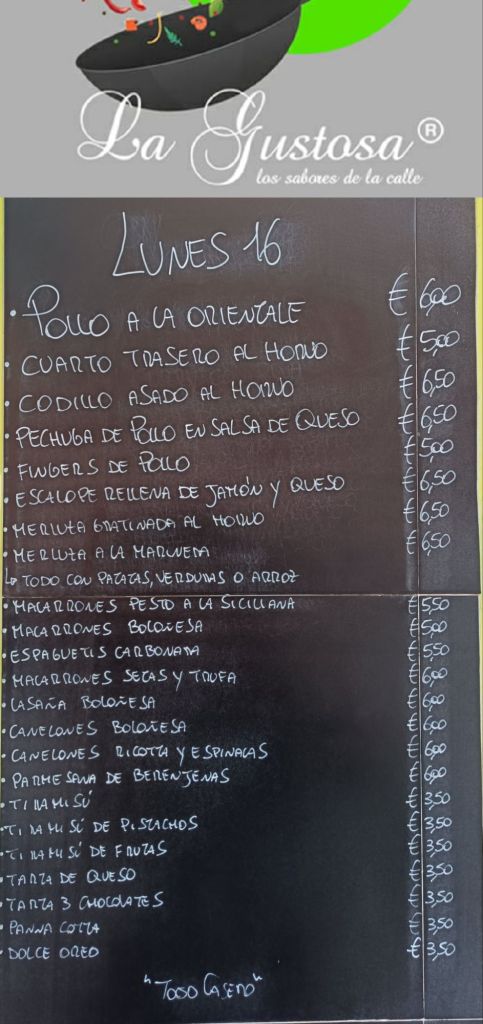 La Gustosa®
los sabores de la calle
LUNES 16
• POLLO A LA ORIENTALE € 6,00
• CUARTO TRASERO AL HORNO € 5,00
• CODILLO ASADO AL HORNO € 6,50
• PECHUGA DE POLLO EN SALSA DE QUESO € 6,50
• FINGERS DE POLLO € 5,00
• ESCALOPE RELLENA DE JAMÓN Y QUESO € 6,50
• MERLUZA GRATINADA AL HORNO € 6,50
• MERLUZA A LA MARINERA € 6,50
↳ TODO CON PATATAS, VERDURAS O ARROZ
• MACARRONES PESTO A LA SICILIANA € 5,50
• MACARRONES BOLOÑESA € 5,00
• ESPAGUETIS CARBONARA € 5,50
• MACARRONES SETAS Y TRUFA € 6,00
• LASAÑA BOLOÑESA € 6,00
• CANELONES BOLOÑESA € 6,00
• CANELONES RICOTTA Y ESPINACAS € 6,00
• PARMESANA DE BERENJENAS € 6,00
• TIRAMISÚ € 3,50
• TIRAMISÚ DE PISTACHOS € 3,50
• TIRAMISÚ DE FRUTAS € 3,50
• TARTA DE QUESO € 3,50
• TARTA 3 CHOCOLATES € 3,50
• PANNA COTTA € 3,50
• DOLCE OREO € 3,50
"TODO CASERO"